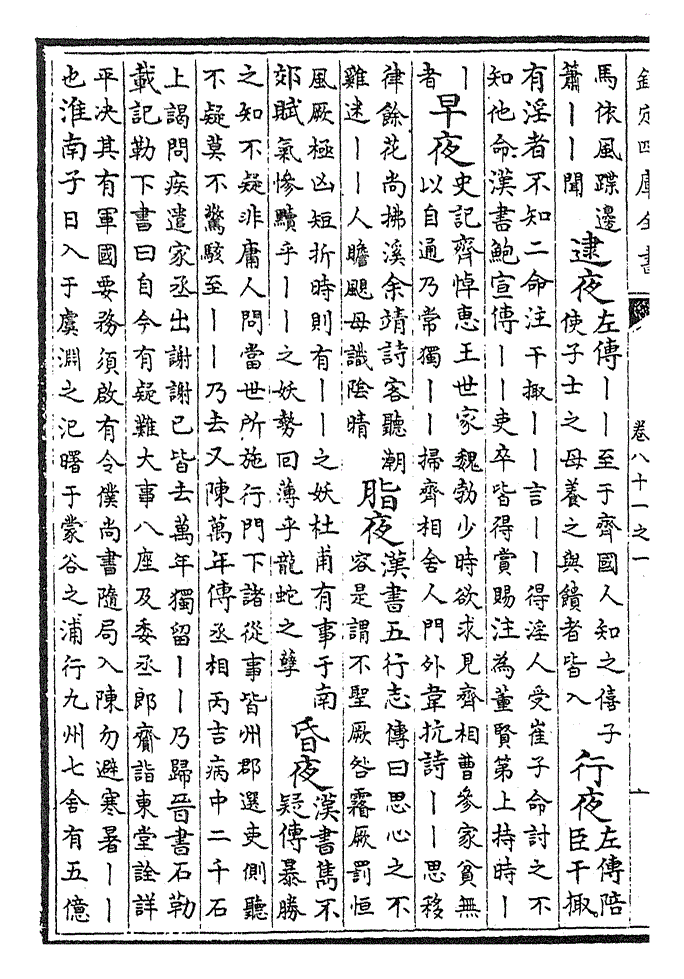 欽定四庫全書
卷八十一之一
馬依風蹀邊
簫丨丨聞
逮夜
左傳丨丨至于齊國人知之僖子
使子士之母養之與饋者皆入
行夜
左傳陪
臣干掫
有淫者不知二命注干掫丨丨言丨丨得淫人受崔子命討之不
知他命漢書鮑宣傳丨丨吏卒皆得賞賜注為董賢第上持時丨
丨
者
早夜
史記齊悼惠王世家魏勃少時欲求見齊相曹參家貧無
以自通乃常獨丨丨掃齊相舍人門外韋抗詩丨丨思移
律餘花尚拂溪余靖詩客聽潮
雞迷丨丨人瞻颶母識陰晴
脂夜
漢書五行志傳曰思心之不
容是謂不聖厥咎霿厥罰恒
風厥極凶短折時則有丨丨之妖杜甫有事于南
郊賦氣慘黷乎丨丨之妖勢囘薄乎龍蛇之孽
昏夜
漢書雋不
疑傳暴勝
之知不疑非庸人問當世所施行門下諸從事皆州郡選吏側聽
不疑莫不驚駭至丨丨乃去又陳萬年傳丞相丙吉病中二千石
上謁問疾遣家丞出謝謝已皆去萬年獨留丨丨乃歸晉書石勒
載記勒下書曰自今有疑難大事八座及委丞郎齎詣東堂詮詳
平決其有軍國要務須啟有令僕尚書隨局入陳勿避寒暑丨丨
也淮南子日入于虞淵之汜曙于蒙谷之浦行九州七舍有五億